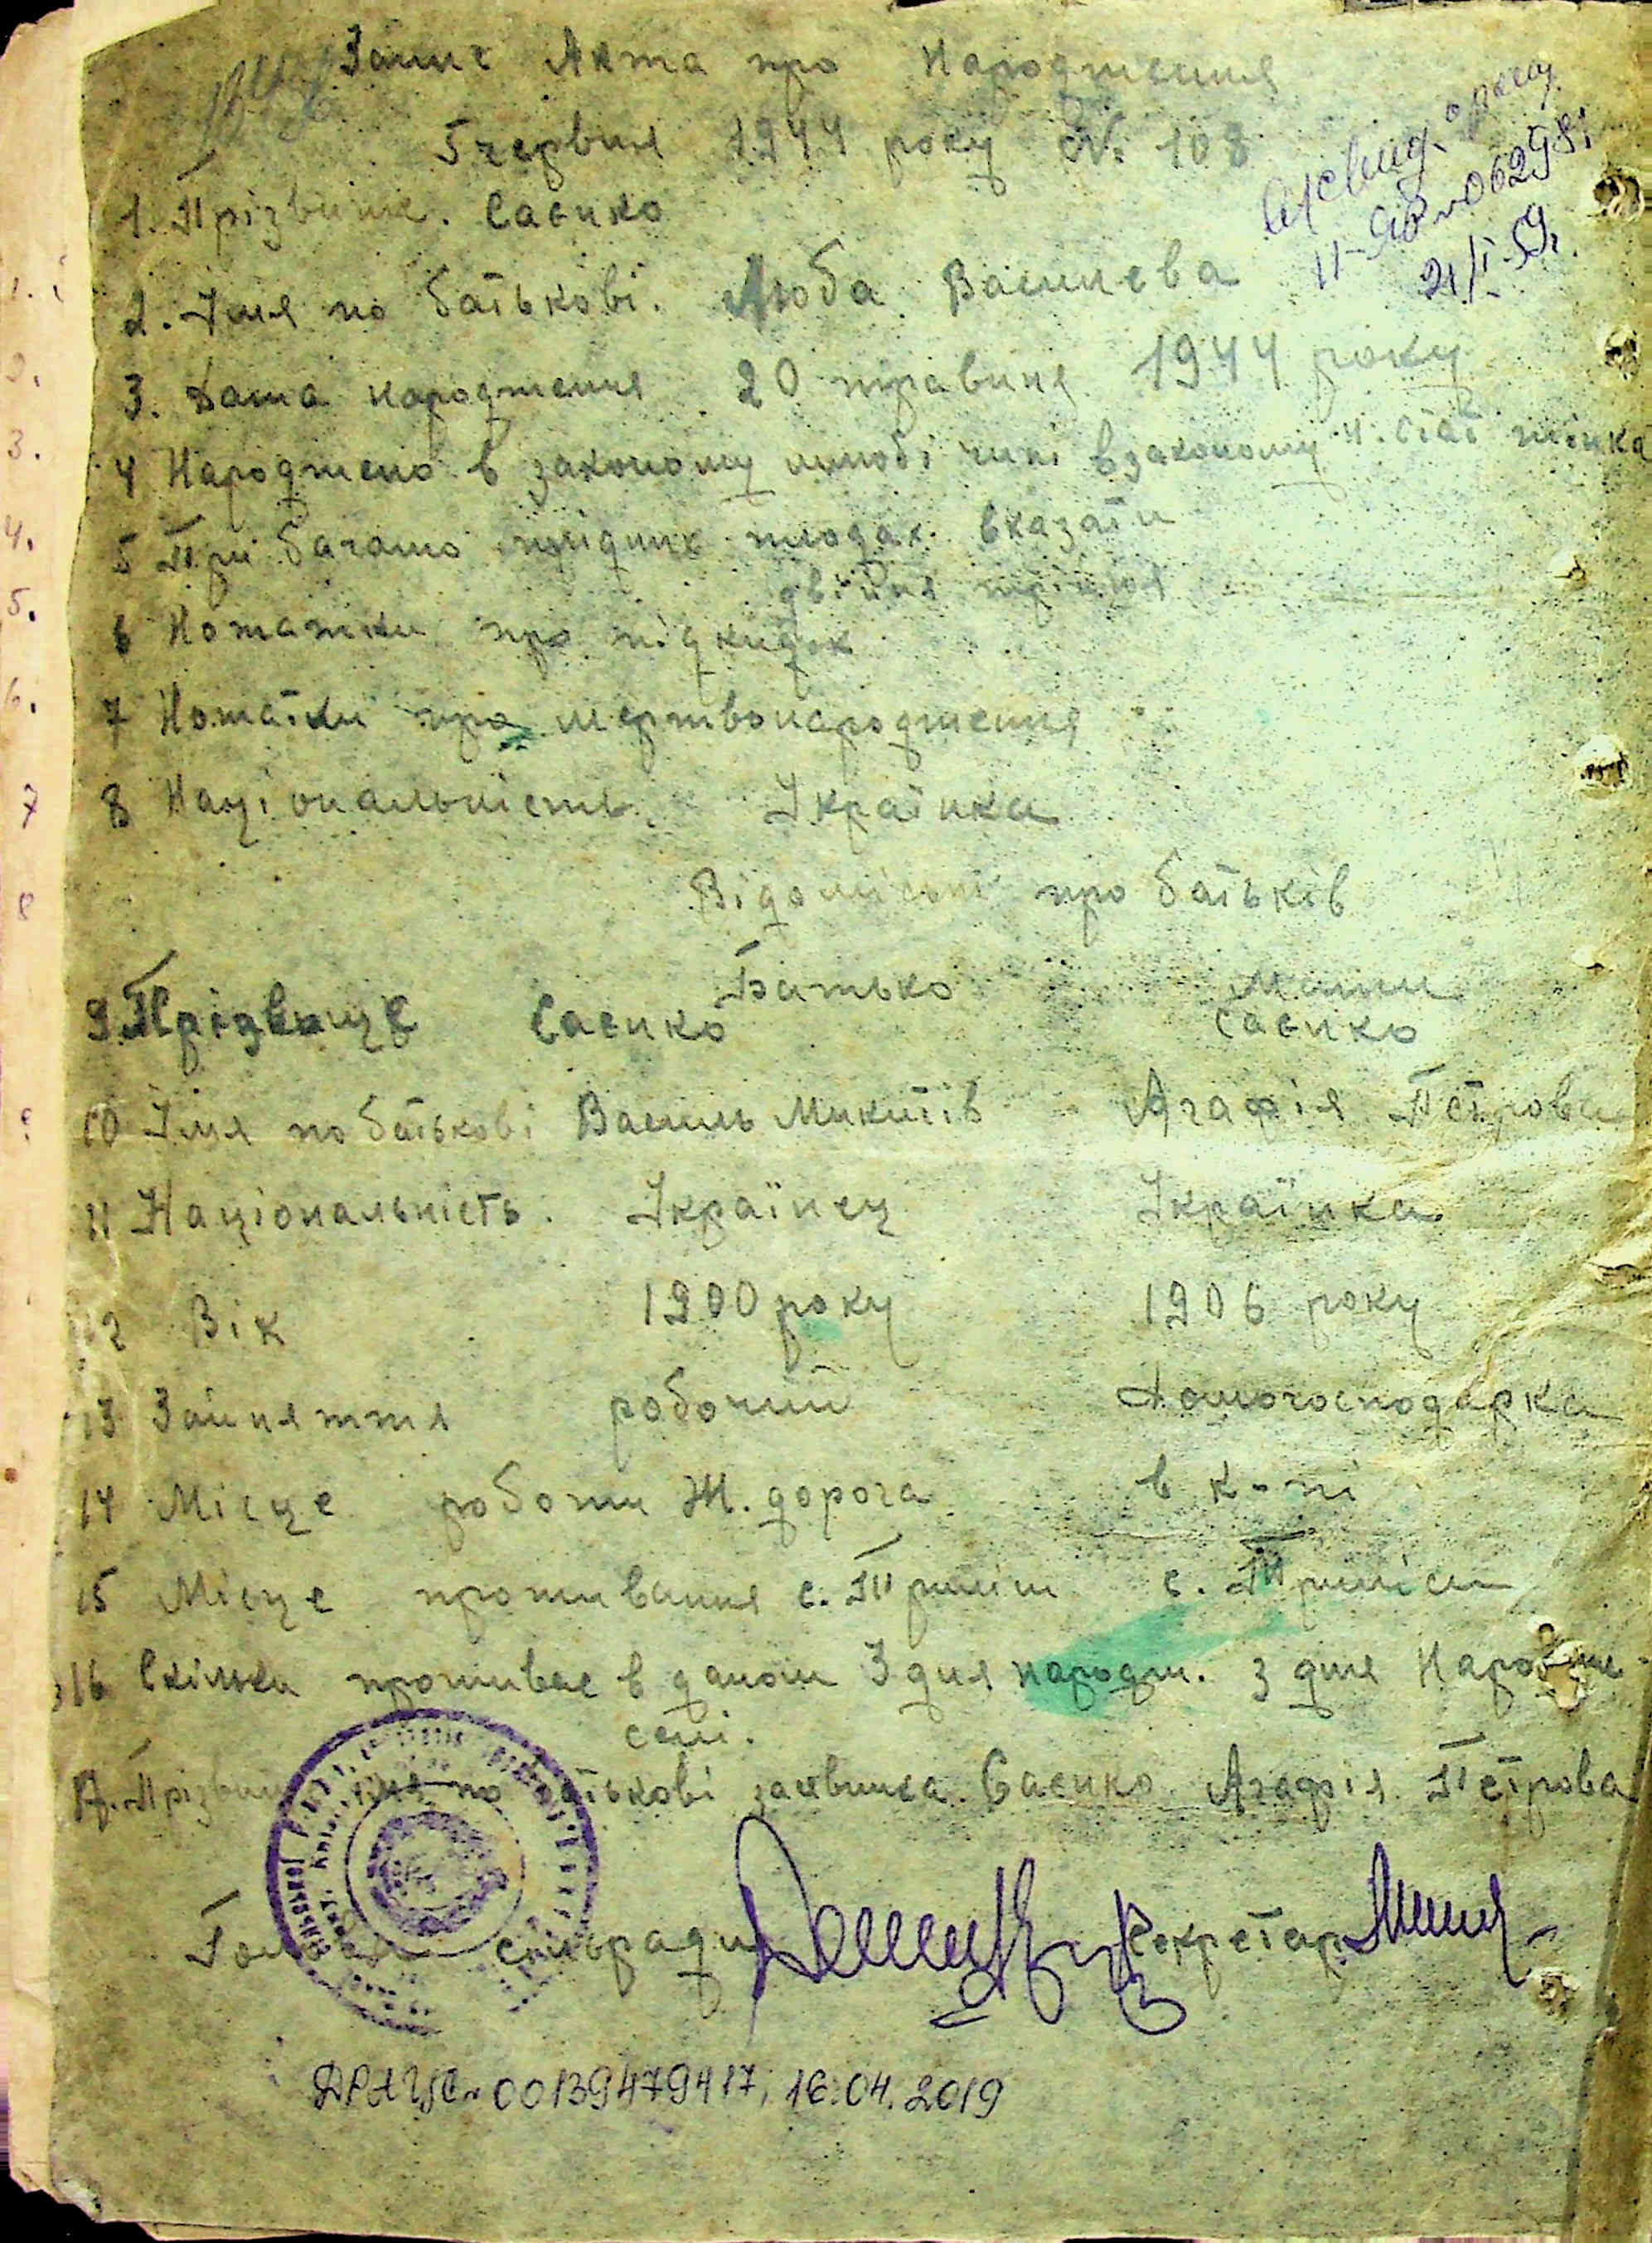 Запис Акта про Народження
5 червня 1944 року № 108
1. Прізвище. Саєнко
2. Імя по батькові. Люба Василєва
3. Дата народження 20 травня 1944 року
4 Народжено в законому шлюбі чині в законому 4. Стат жінка
5 При багато плідних плодах вказати
двійня трійня
6 Нотатки про підкидок
7 Нотатки про мертвонародження
8 Національність. Українка
Відомісті про батьків
Батько Мати
9. Прізвище Саєнко Саєнко
10 Імя по батькові Василь Микитів Агафія Петрова
11 Національність. Українец Українка
12 Вік 1900 року 1906 року
13 Зайняття робочий Домогосподарка
14 Місце роботи Ж. дорога в к-пі
15 Місце проживання с.
16 Скільки проживає в даном З дня народж. з дня Народже
селі.
17. Прізвищ імя по батькові заявника. Саєнко Агафія Петрова
Голова сільради Секретар
ДРАЦС 00139479417, 16.04.2019
21/I-59.